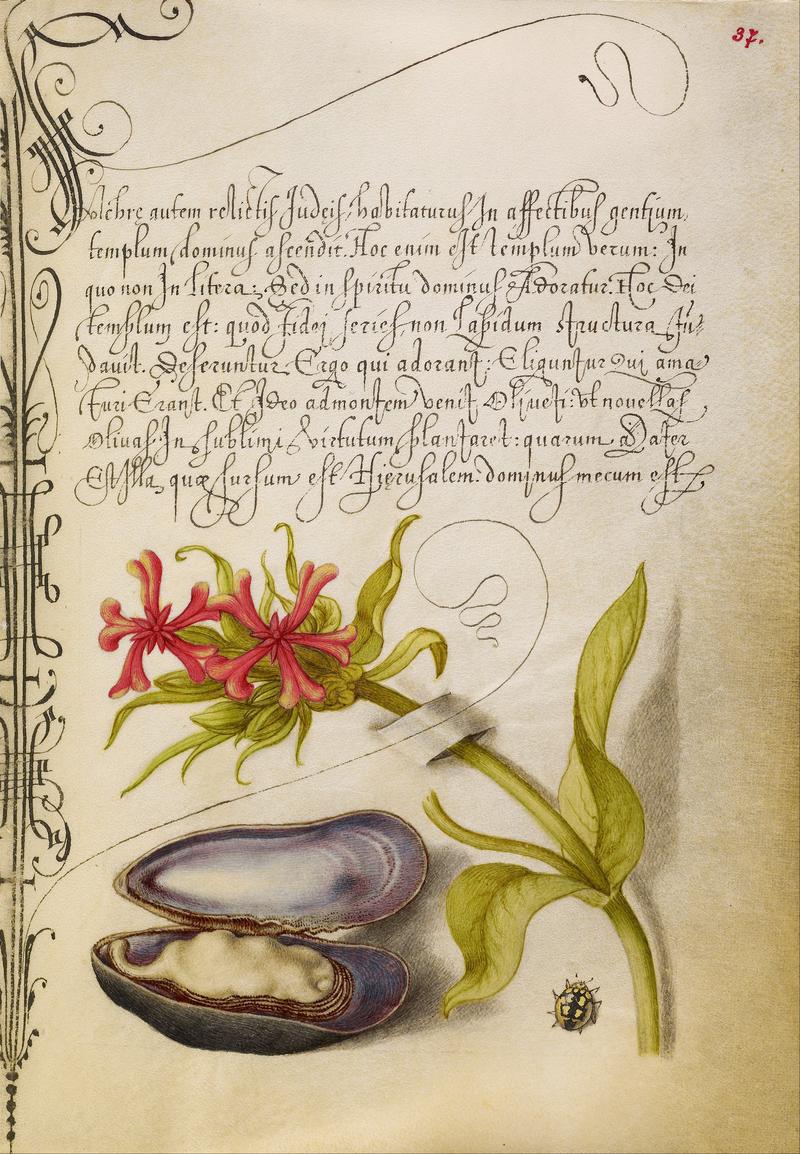 37.
autem relictis Judeis, habitaturus In affectibus gentium,
templum dominus ascendit. Hoc enim est templum verum: In
quo non In litera: Sed in spiritu dominus Adoratur. Hoc Dei
templum est: quod fidei series, non Lapidum structura fu-
davit. Deseruntur Ergo qui adorant: Eliguntur Qui ama
turi Erant. Et Ideo admontem venit Oliueti: vt nouellas
Oliuas In sublimi virtutum plantaret: quarum Mater
Est Illa, quæ sursum est Hierusalem: dominus mecum est